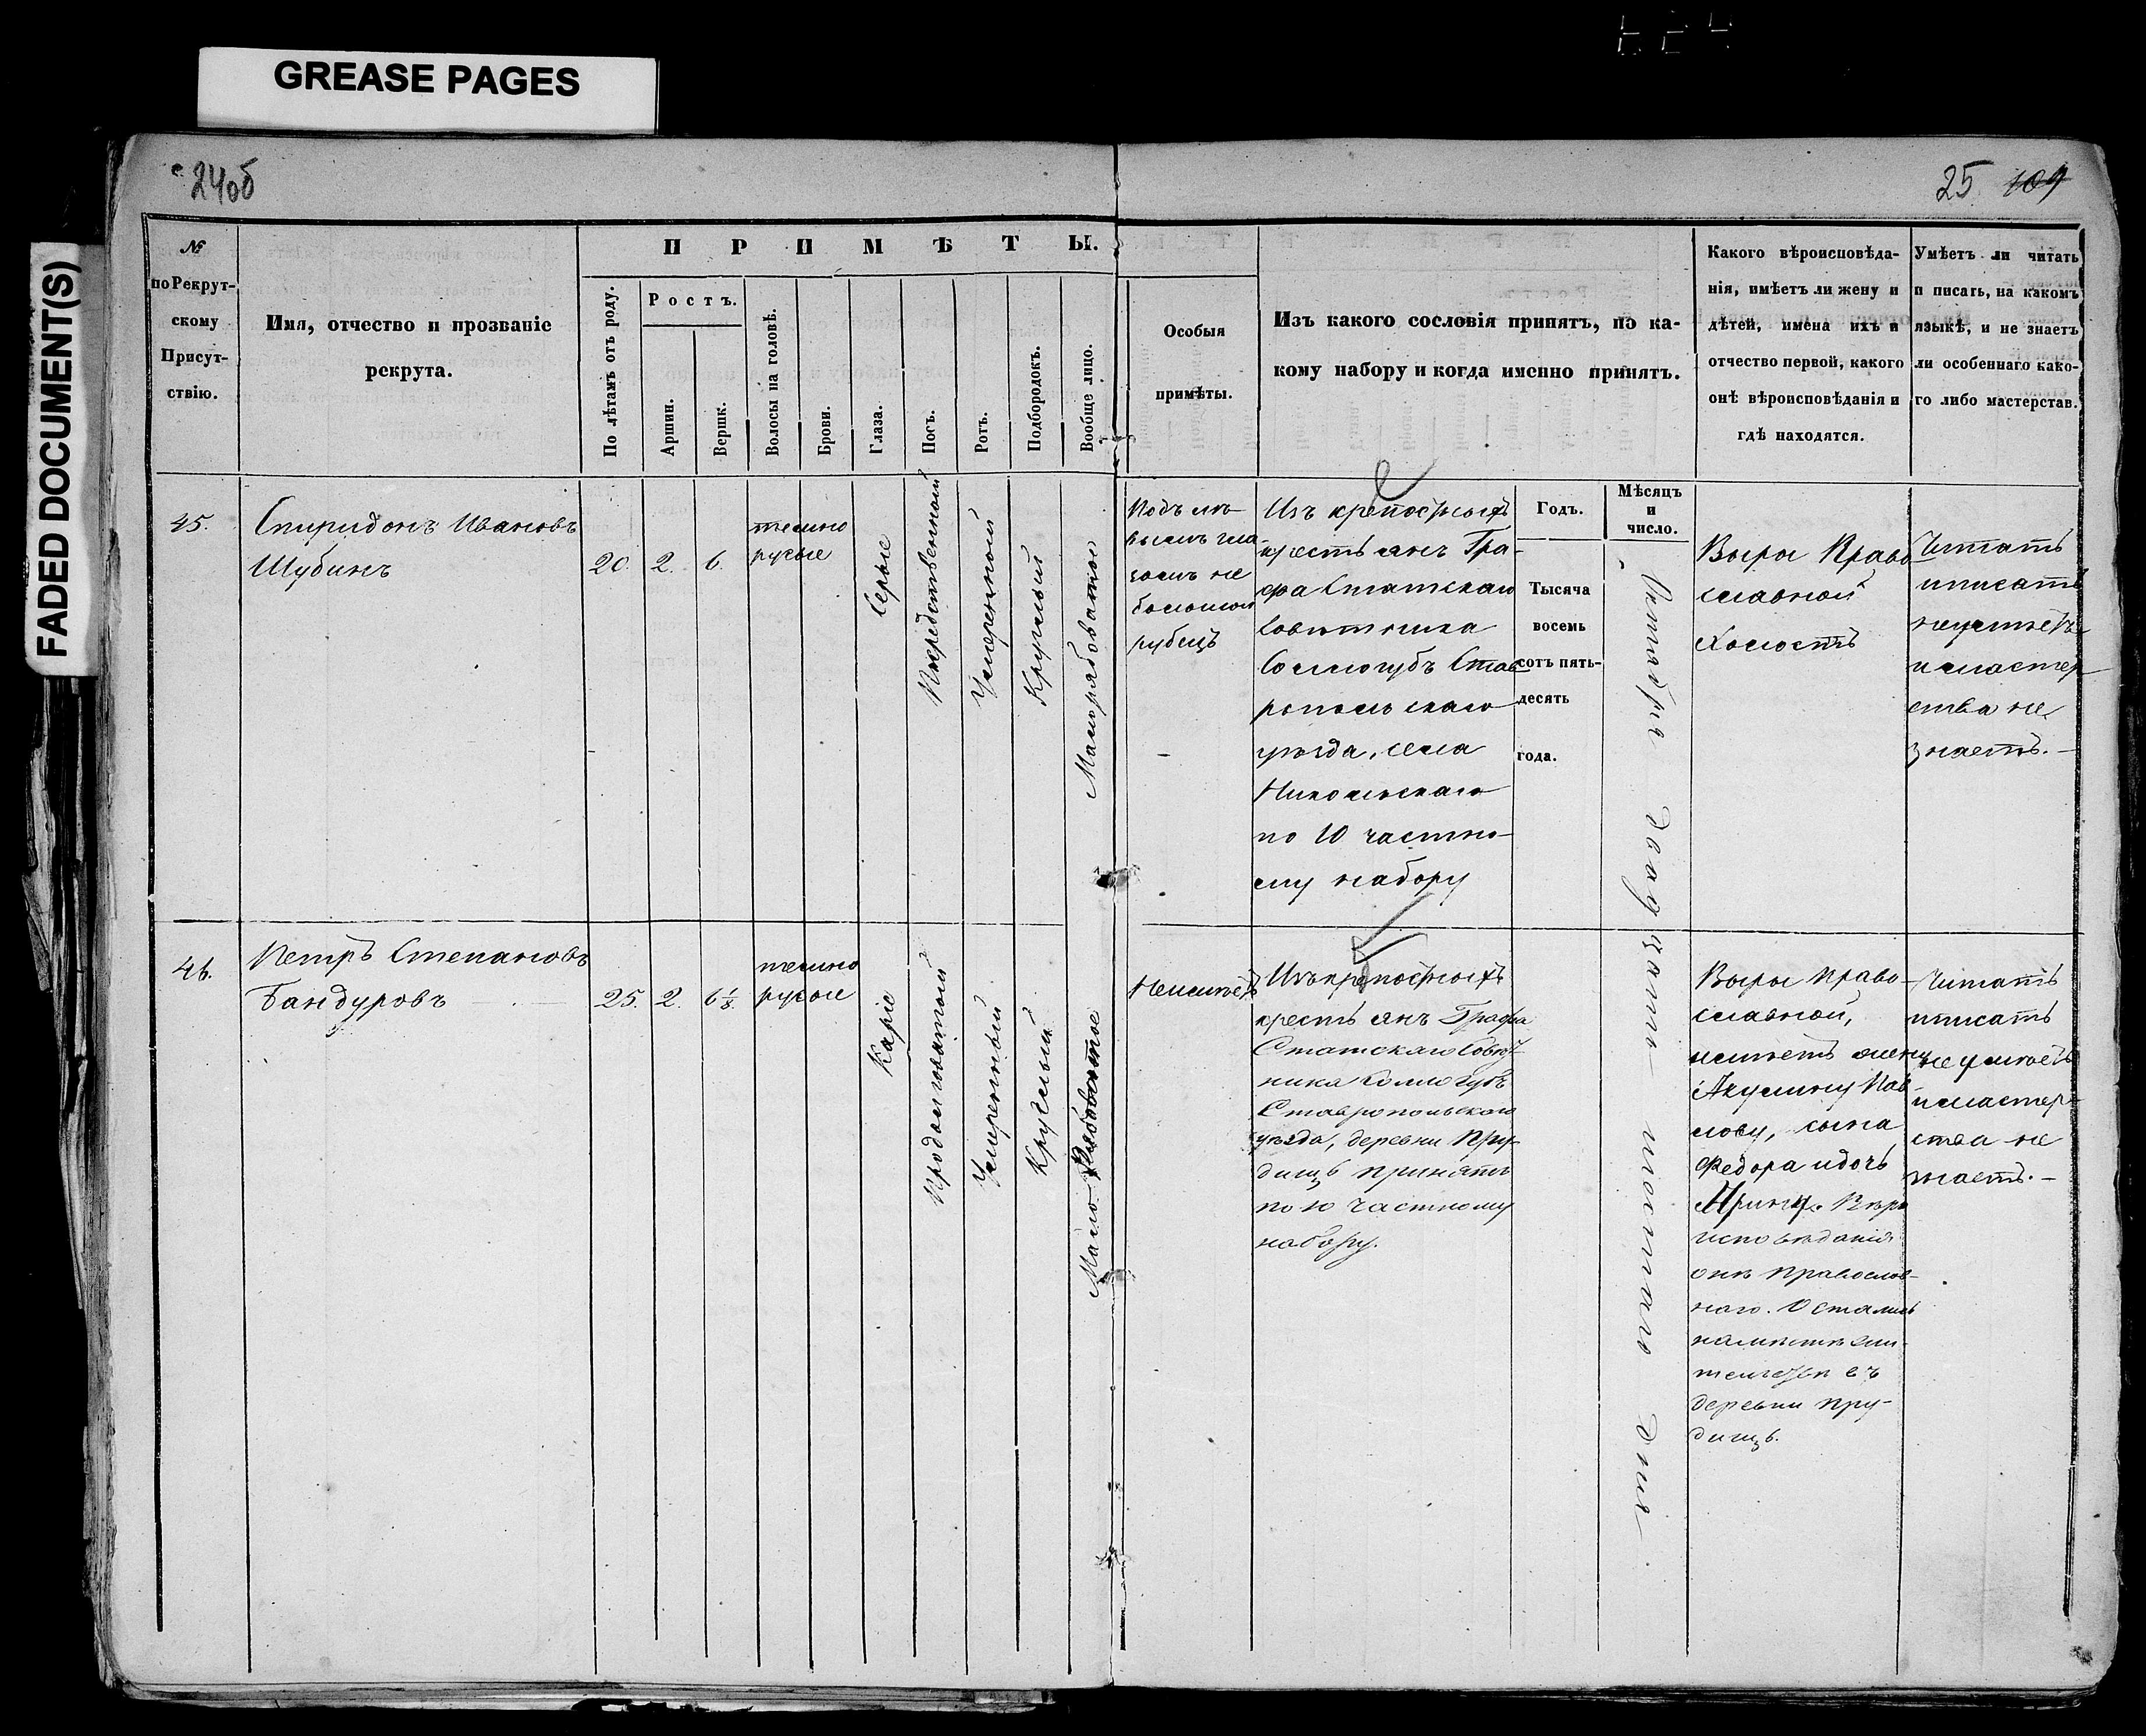 GREASE PAGES
FADED DOCUMENT(S)
24об
25 109
№
по Рекрут-
скому
Присут-
ствію.
Имя, отчество и прозваніе
рекрута.
ПРИМѢТЫ.
По лѣтамъ отъ роду.
Ростъ.
Аршин.
Вершк.
Волосы на головѣ.
Брови.
Глаза.
Носъ.
Ротъ.
Подбородокъ.
Вообще лицо.
Особыя
примѣты.
Изъ какого сословія принятъ, по ка-
кому набору и когда именно принятъ.
Какого вѣроисповѣда-
нія, имѣетъ ли жену и
дѣтей, имена ихъ и
отчество первой, какого
онѣ вѣроисповѣданія и
гдѣ находятся.
Умѣетъ ли читать
и писать, на какомъ
языкѣ, и не знаетъ
ли особеннаго како-
го либо мастерства.
45.
Спиридонъ Ивановъ
Шубинъ
20.
2.
6.
темно
русые
Серые
Посредственный
Умеренный
Круглый
Малорябоватое
Подъ лѣ-
вымъ гла-
зомъ не
большой
рубецъ
Изъ крепостныхъ
крестьянъ Гра-
фа Статскаго
Советника
Соллогубъ Став-
ропольскаго
уезда, села
Никольскаго
по 10 частно-
му набору
Годъ.
Тысяча
восемь
сотъ пять-
десятъ
года.
Мѣсяцъ
и
число.
Октября двадцать шестаго дня
Веры Право-
славной
Холостъ
Читать
и писать
неумѣетъ
и мастер-
ства не
знаетъ.-
46.
Петръ Степановъ
Бандуровъ
25.
2.
6 1/8.
темно
русые
Каріе
Продолговатый
Умеренный
Круглый
Мало Рябоватое
Неимѣетъ
Изъ крепостныхъ
крестьянъ Графа
Статскаго Совет-
ника Соллогубъ
Ставропольскаго
уезда, деревни Пру-
дищъ принятъ
по 10 частному
набору.
Веры Право-
славной,
имѣетъ жену
Акулину Пав-
лову, сына
Федора и дочь
Арину. Веро
исповѣданія
онѣ православ-
наго. Остались
на мѣстѣ жи-
тельства въ
деревни Пру-
дищъ.
Читать
и писать
не умѣетъ
и мастер-
ства не
знаетъ.-